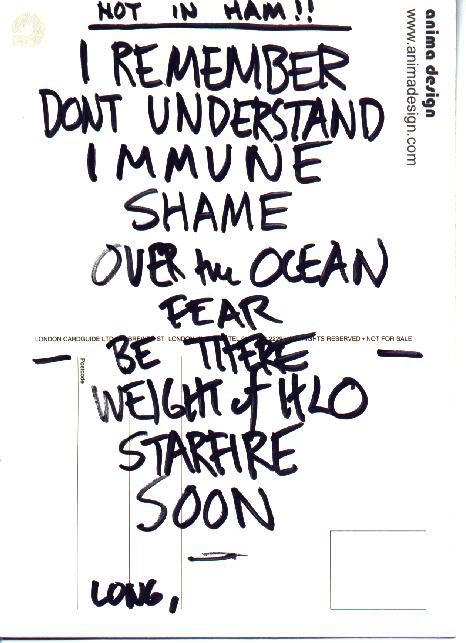 HOT IN HAM!!
I REMEMBER
DONT UNDERSTAND
IMMUNE
SHAME
OVER the OCEAN
FEAR
BE THERE
WEIGHT of HLO
STARFIRE
SOON
LONG,
anima design
www.animadesign.com
LONDON CARDGUIDE LTD ST LONDON TEL 2229 RIGHTS RESERVED • NOT FOR SALE
Postcode